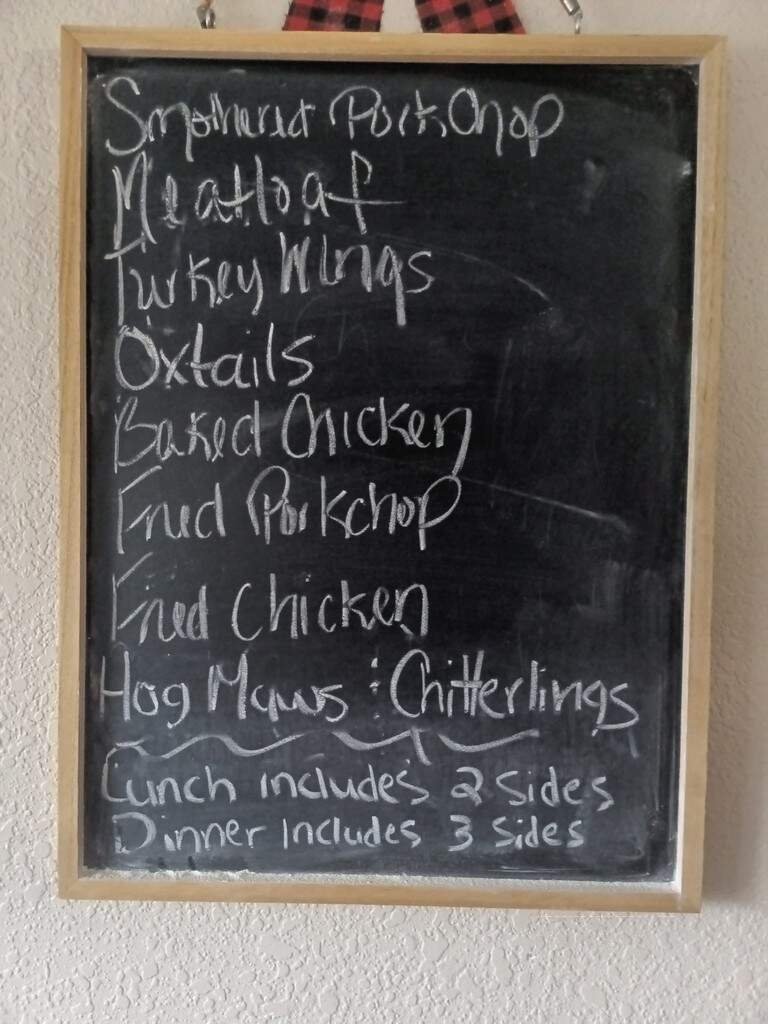 Smothered Pork Chop
Meatloaf
Turkey Wings
Oxtails
Baked Chicken
Fried Porkchop
Fried Chicken
Hog Maws : Chitterlings
Lunch includes 2 sides
Dinner includes 3 sides